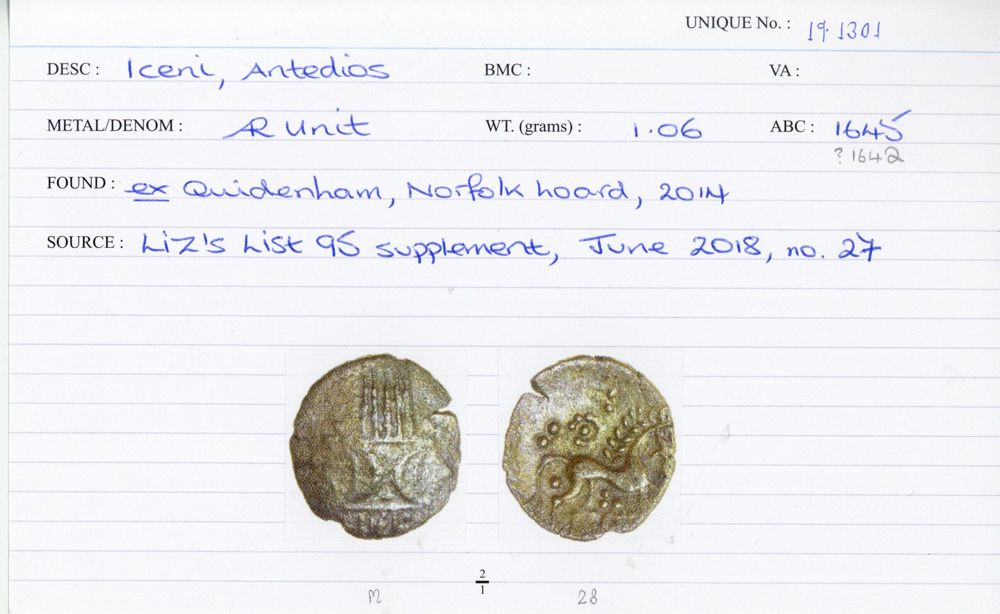 UNIQUE No. : 19.1301
DESC : Iceni, Antedios BMC : VA :
METAL/DENOM : AR Unit WT. (grams) : 1.06 ABC : 1645
? 1642
FOUND : ex Quidenham, Norfolk hoard, 2014
SOURCE : Liz's List 95 supplement, June 2018, no. 27
2
1
M 28